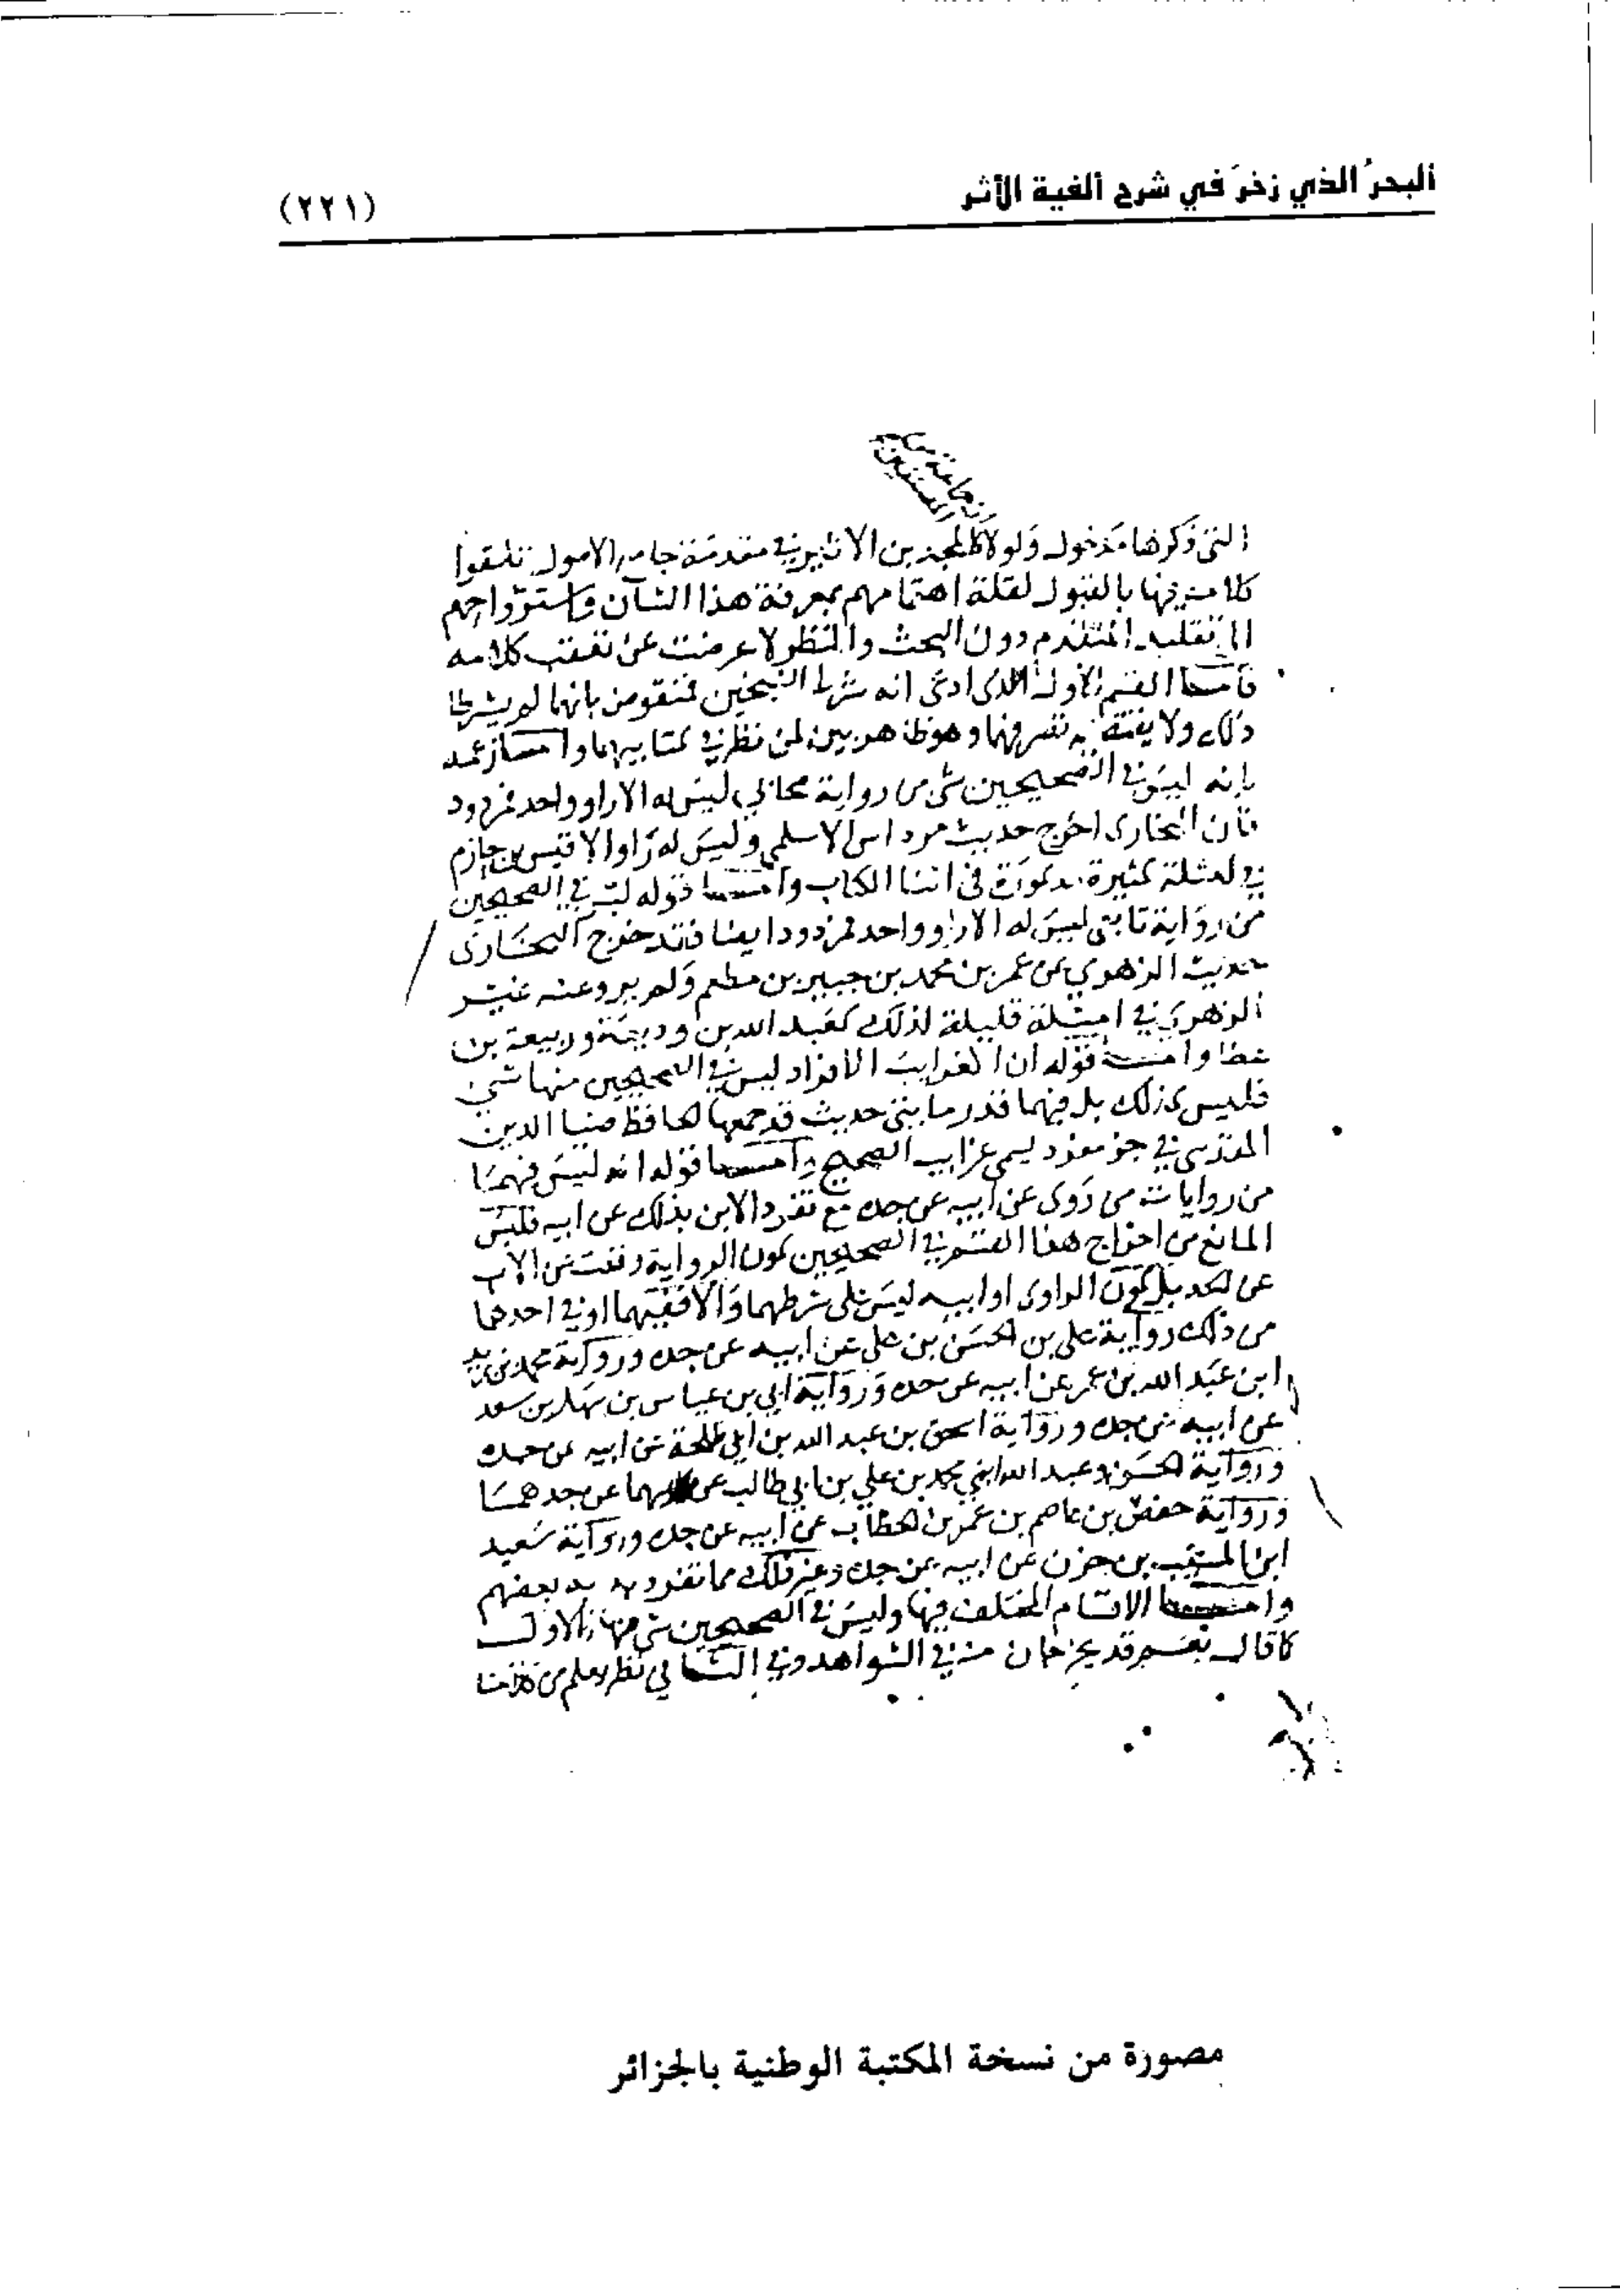 البحرُ الذي زخرَ في شرح ألفية الأثر
(٢٢١)
التى ذكرها مدخول ولولا المجد بن الاثير في مقدمة جامع الاصول تلقوا
كلامه فيها بالقبول لقلة اهتمامهم بمعرفة هذا الشان واسترواحهم
الى تقليد المتقدم دون البحث والنظر لاعرضت عن تعقب كلامه
فأما القسم الاول الذى ادعى انه شرط الشيخين فمنقوض بانهما لم يشترطا
ذلك ولا يقتضيه تصرفهما وهو ظاهر بين لمن نظر في كتابيهما واما زعمه
بانه ليس في الصحيحين شى من رواية صحابي ليس له الا راو واحد فمردود
فان البخارى اخرج حديث مرداس الاسلمي وليس له راو الا قيس بن حازم
في امثلة كثيرة مذكورة في اثنا الكتاب واما قوله ليس في الصحيحين
من رواية تابعى ليس له الا راو واحد فمردود ايضا فقد خرج البخارى
حديث الزهوي عن عمر بن محمد بن جبير بن مطعم ولم يرو عنه غير
الزهرى في امثلة قليلة لذلك كعبد الله بن وديعة وربيعة بن
عطا واما قوله ان الغرايب الافراد ليس في الصحيحين منها شي
فليس كذلك بل فيهما قدر مايتى حديث قد جمعها الحافظ ضيا الدين
المقدسى في جز مفرد يسمى غرايب الصحيح واما قوله انه ليس فيهما
من روايات من روى عن ابيه عن جده مع تفرد الابن بذلك عن ابيه فليس
المانع من اخراج هذا القسم في الصحيحين كون الرواية وقعت عن الاب
عن الجد بل كون الراوى او ابيه ليس على شرطهما والا ففيهما او في احدهما
من ذلك رواية على بن الحسن بن على عن ابيه عن جده ورواية محمد بن زيد
ابن عبد الله بن عمر عن ابيه عن جده ورواية ابي بن عباس بن سهل بن سعد
عن ابيه عن جده ورواية اسحق بن عبد الله بن أبي طلحة عن ابيه عن جده
ورواية الحسن وعبد الله ابني محمد بن علي بن ابي طالب عن ابيهما عن جدهما
ورواية حفص بن عاصم بن عمر بن الخطاب عن ابيه عن جده ورواية سعيد
ابن المسيب بن حزن عن ابيه عن جده وغير ذلك مما تفرد به بعضهم
واما الاقسام المختلف فيها وليس في الصحيحين شى منها فالاول
كما قال نعم قد يخرجان منه في الشواهد وفي الثاني نظر يعلم من كلامنا
مصورة من نسخة المكتبة الوطنية بالجزائر